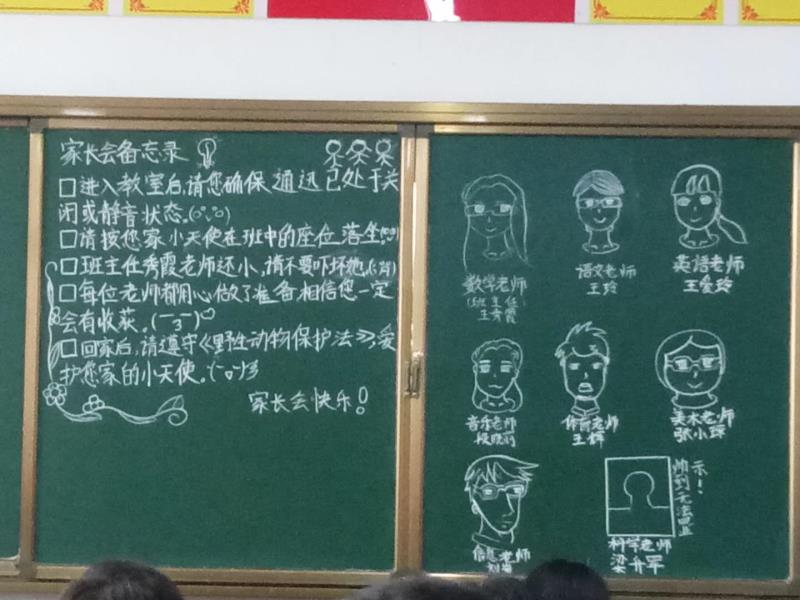 家长会备忘录
□进入教室后,请您确保通迅已处于关
闭或静音状态.(○°○)
□请按您家小天使在班中的座位落坐.
□班主任秀霞老师还小,请不要吓坏她.
□每位老师都用心做了准备,相信您一定
会有收获.(￣3￣)
□回家后,请遵守《野生动物保护法》,爱
护您家的小天使.
家长会快乐!
数学老师
(班主任)
王秀霞
语文老师
王玲
英语老师
王爱玲
音乐老师
段晓羽
体育老师
王辉
美术老师
张小琛
信息老师
帅到无法显示!
科学老师
梁升军